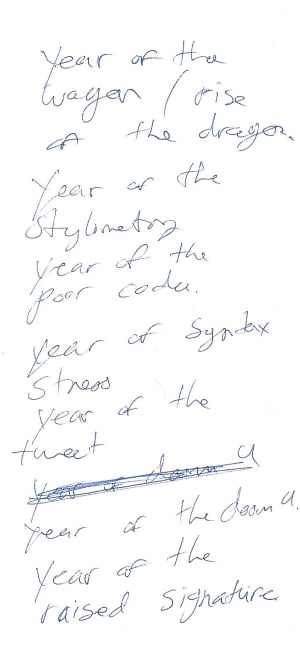 year of the
wagon / rise
of the dragon.
year of the
Stylometry
year of the
poor coder.
year of Syntax
Stress
year of the
tweet
year of doom 4
year of the doom 4.
year of the
raised signature